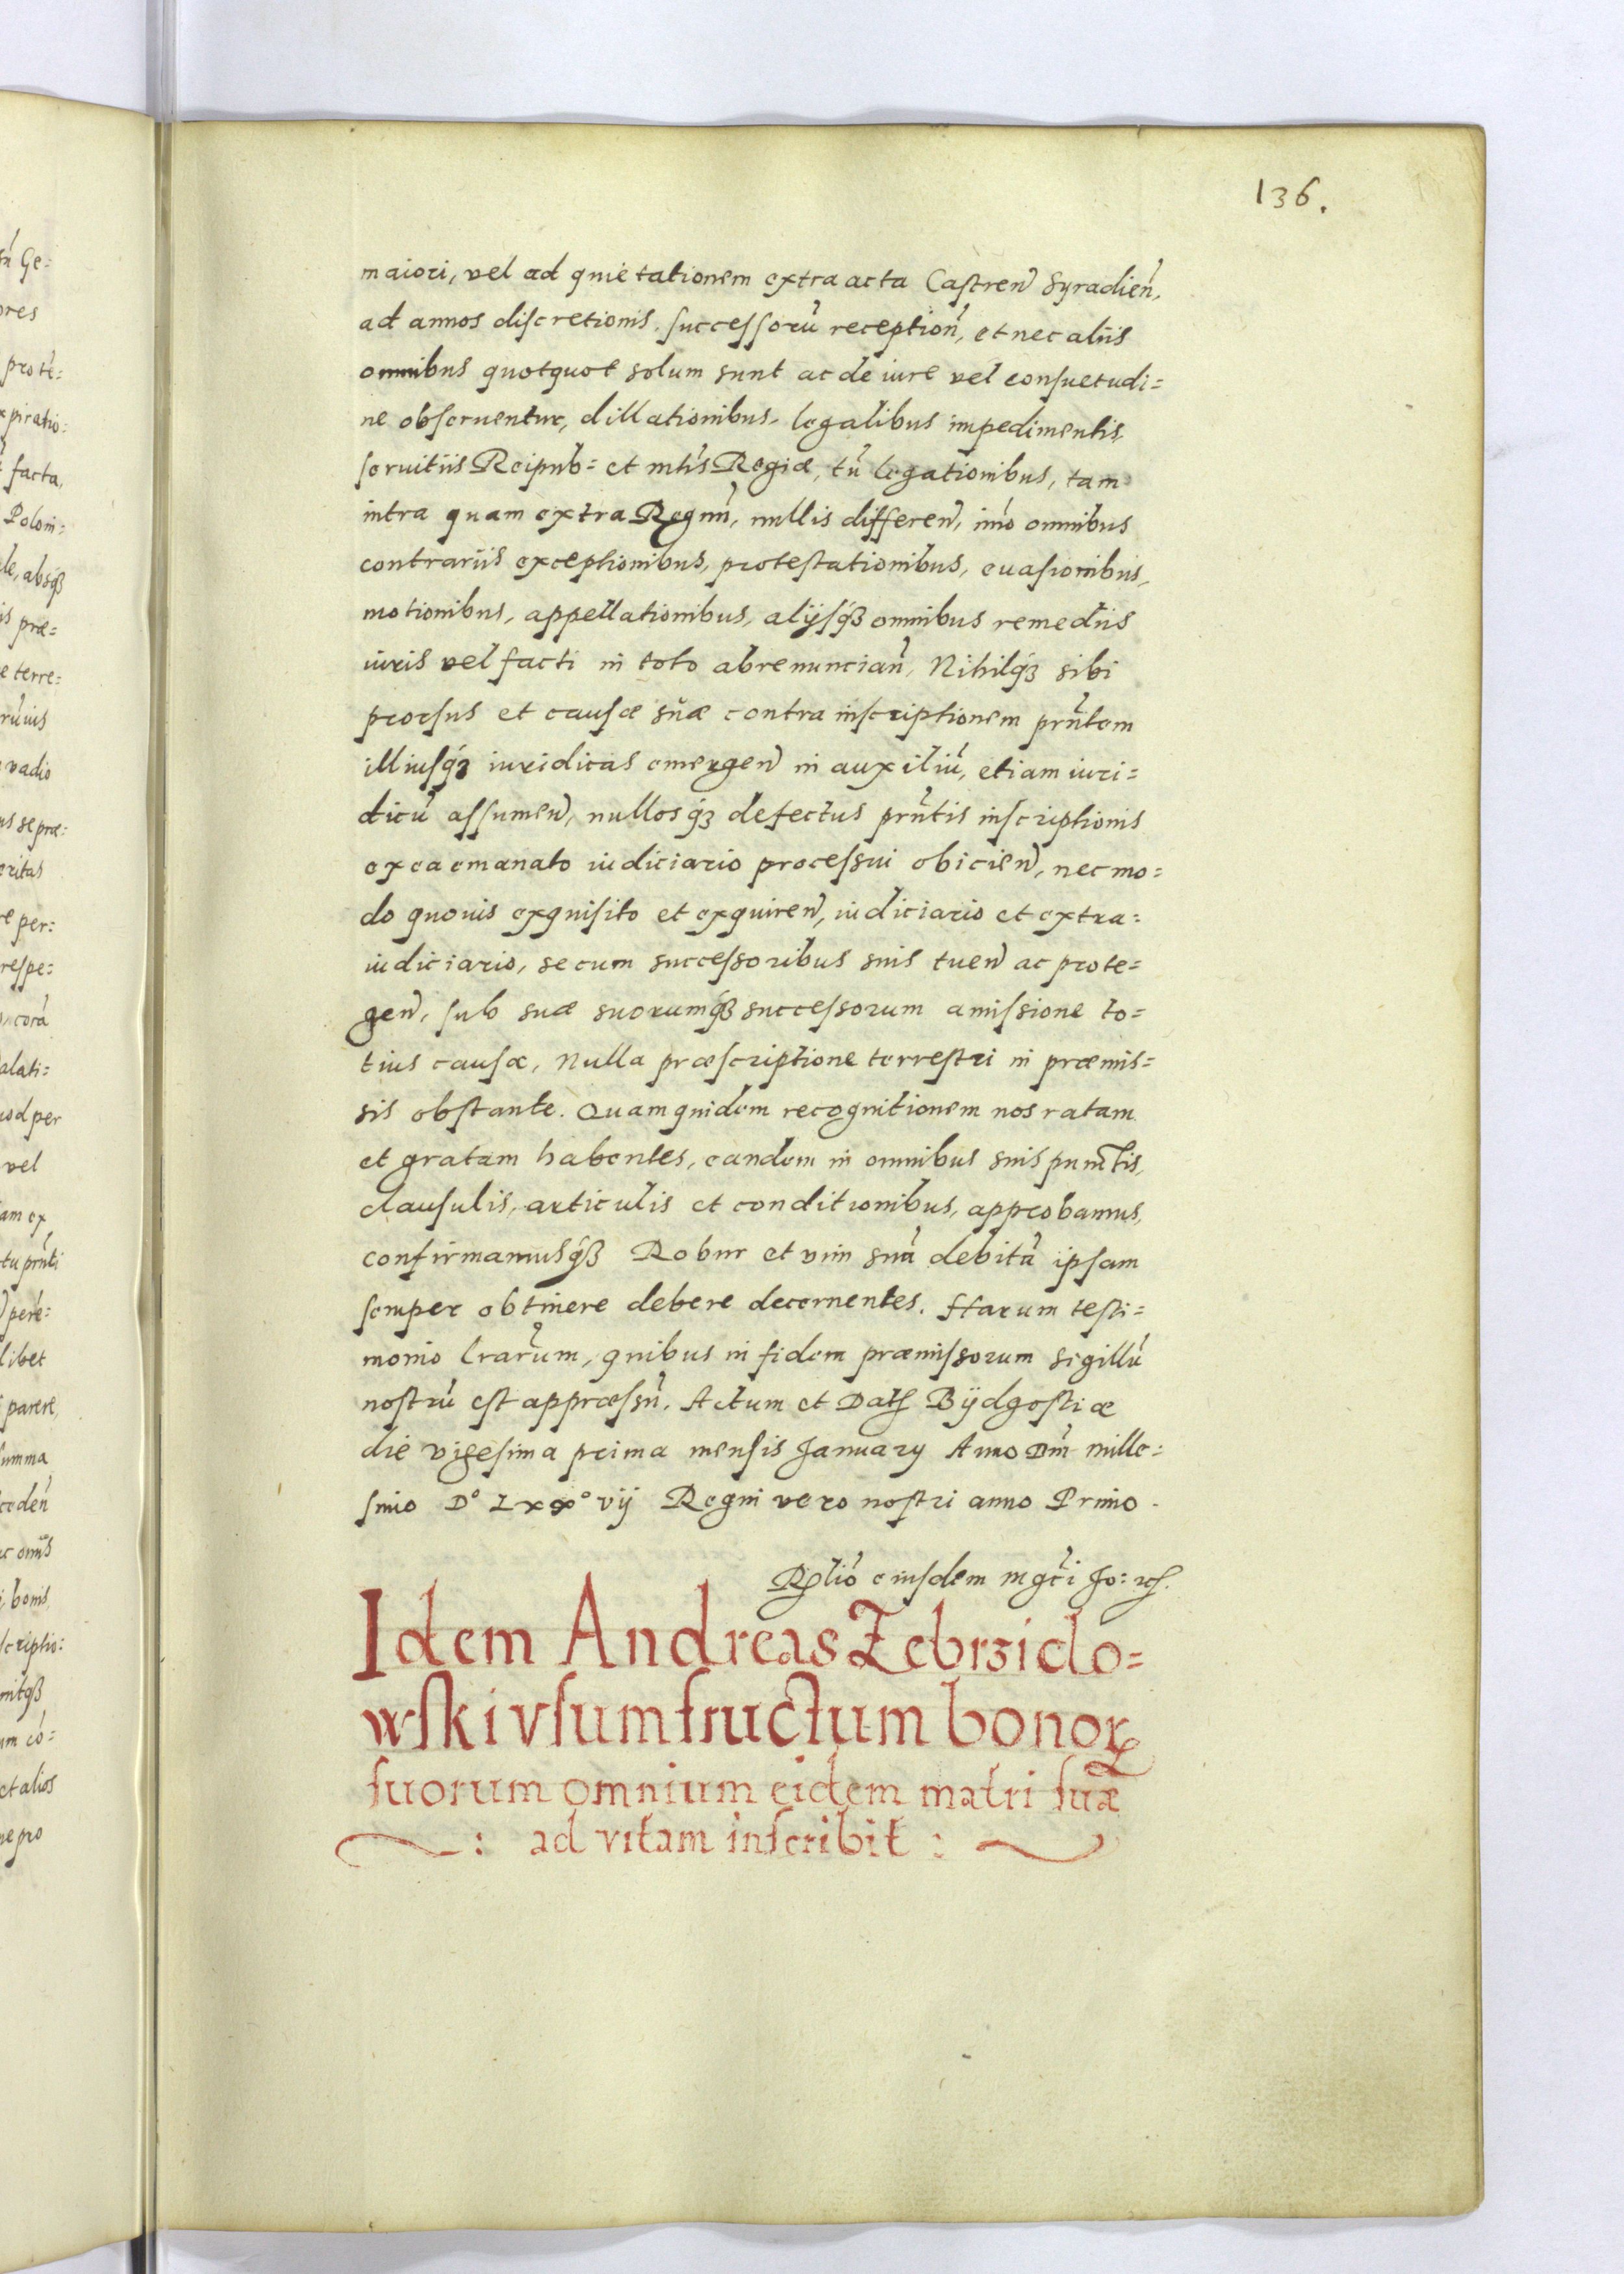 136.
maiori, vel ad quietationem extra acta Castren̄ Syradien̄,
ad annos discretionis, successorū reception̄, et nec aliis
omnibus quotquot solum sunt ac de iure vel consuetudi=
ne obseruentur, dillationibus, legalibus impedimentis,
seruitiis Reipub= et mtis Regiæ, tū legationibus, tam
intra quam extra Regnū, nullis differen̄, imo omnibus
contrariis exceptionibus, protestationibus, euasionibus,
motionibus, appellationibus, alijsqȝ omnibus remediis
iuris vel facti in toto abrenuncian̄, Nihilqȝ sibi
prorsus et causæ suæ contra inscriptionem prn̄tem
illiusqȝ iuridicas emergen̄ in auxiliū, etiam iuri=
dicū assumen̄, nullosqȝ defectus prn̄tis inscriptionis
ex ea emanato iudiciario processui obicien̄, nec mo=
do quouis exquisito et exquiren̄, iudiciario et extra=
iudiciario, se cum successoribus suis tuen̄ ac prote=
gen̄, sub suæ suorumqȝ successorum amissione to=
tius causæ, Nulla præscriptione terrestri in præmis=
sis obstante. Quam quidem recognitionem nos ratam
et gratam habentes, eandem in omnibus suis punctis,
clausulis, articulis et conditionibus, approbamus,
confirmamusqȝ Robur et vim suā debitā ipsam
semper obtinere debere decernentes. Harum testi=
monio lrarum, quibus in fidem præmissorum sigillū
nostrū est appræssū. Actum et Dat Bydgostiæ
die vigesima prima mensis January Anno Dnī mille=
simo D° Lxx° vij Regni vero nostri anno Primo.
Rltio eiusdem mgci Jo: rc.
Idem Andreas Zebrzido=
wski vsumfructum bonoꝝ
suorum omnium eidem matri suæ
: ad vitam inscribit :
sū Ge=
ores
prote=
xpiratio=
facta,
Poloni=
le, absqȝ
is præ=
e terre=
ruius
vadio
us se præ=
eritas
re per=
respe=
corā
alati=
uod per
vel
am ex
tu prn̄ti
pere=
libet
parere,
summa
ceden̄
ac omēs
bonis,
scriptio=
mitqȝ
um co=
et alios
ne pro